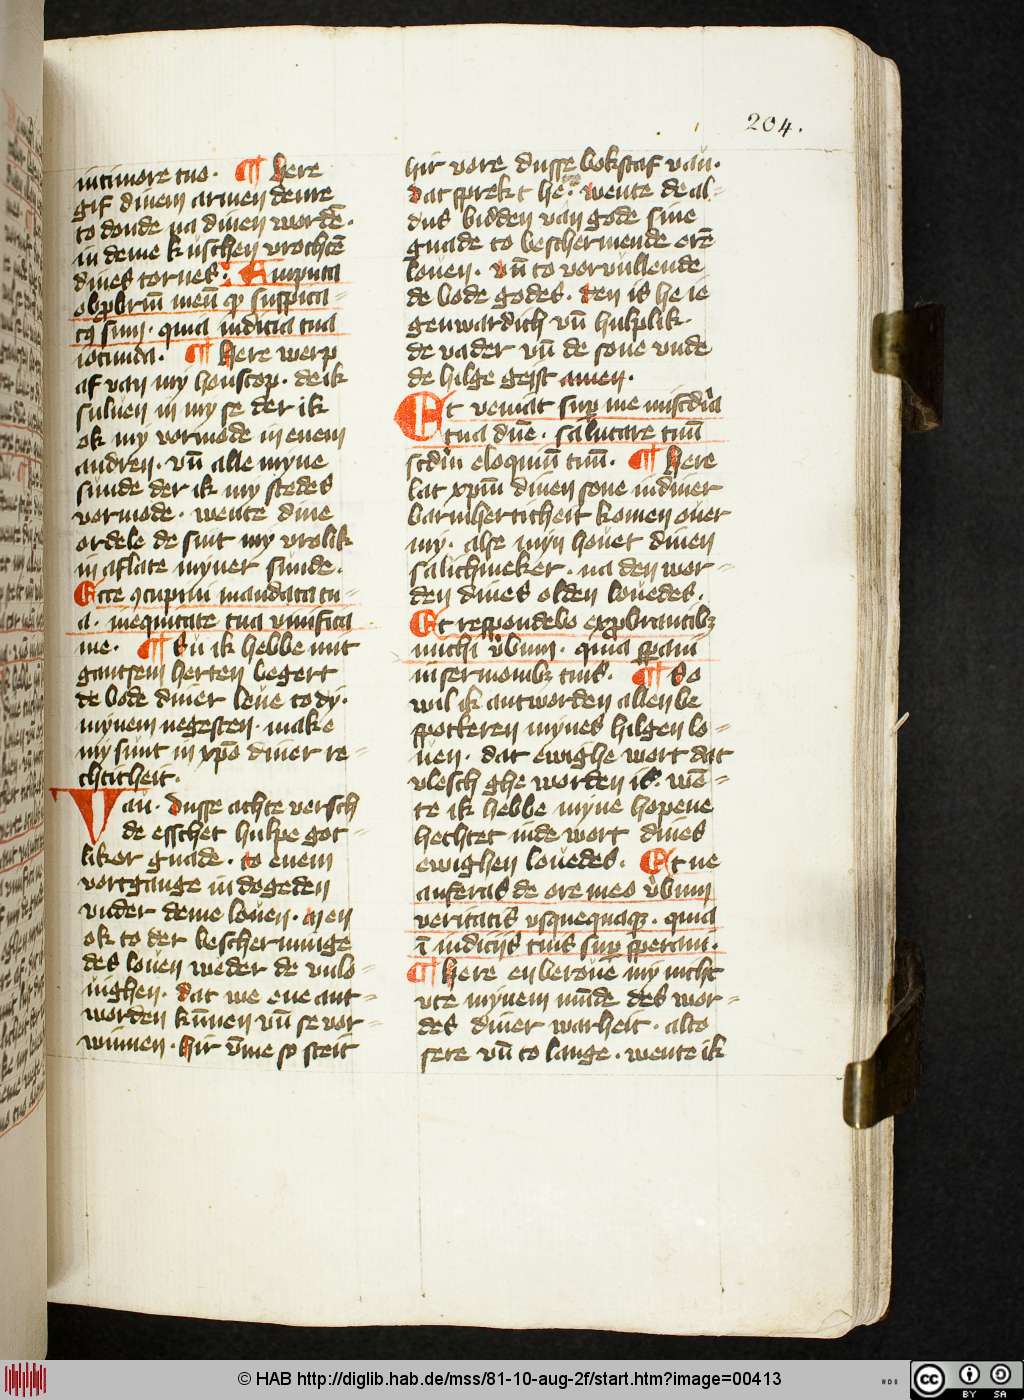 204.
in timore tuo. ¶ Here
gif dinem armen deme
to donde na dinen wordē.
in deme kuschen vrochtē
dines tornes. Amputa
obprobriū meū qđ suspica-
tꝰ sum. quia iudicia tua
iocunda. ¶ Here werp
af van my honscop. de ik
suluen in my se der ik
ok my vormode in enem
andren. vn̄ alle myne
sunde der ik my stedes
vormode. wente dine
ordele de sint my vrolik
in aflate myner sunde.
Ecce ꝯcupiui mandata tu-
a. in equitate tua viuifica
me. ¶ Su ik hebbe mit
gantsem herten begert
de bode diner leue to dy.
mynem negesten. make
my sunt in xpo diner re-
chticheit.
Vau. dusse achte versch
de esschet hulpe got-
liker gnade. to enem
vortgange in dogeden
vnder deme louen. in en
ok to der bescherminge
des louen weder de vnlo-
uighen. dat we ene ant-
worden kūnen vn̄ se vor-
winnen. hir v̄me so steit
hir vore dusse bokstaf vau.
dat sprekt he. wente de al-
dus bidden van gode sine
gnade to beschermende erē
louen. vn̄ to vorvullende
de bode godes. den is he ie
genwardich vn̄ hulplik
de vader vn̄ de sone vnde
de hilge geist amen.
Et veniat sup me miscdia
tua dn̄e. salutare tuū
scdm eloquiū tuū. ¶ Here
lat xpm̄ dinen sone in diner
barmherticheit komen ouer
my. alse myn houet dinen
salichmeker. na den wor-
den dines olden louedes.
Et respondebo exprobrantibꝫ
michi v̄bum. quia speraui
in sermonibꝫ tuis. ¶ So
wil ik antworden allen be
spotteren mynes hilgen lo-
uen. dat ewighe wort dat
vlesch ghe worden is. wē-
te ik hebbe myne hopene
hechtet in de wort dines
ewighen louedes. Et ne
auferas de ore meo v̄bum
veritatis vsquequaqꝫ. quia
ī iudiciis tuis sup speraui.
¶ Here en beroue my nicht
vte mynem mūde des wor-
des diner warheit. alto
sere vn̄ to lange. wente ik
© HAB http://diglib.hab.de/mss/81-10-aug-2f/start.htm?image=00413
cc BY SA